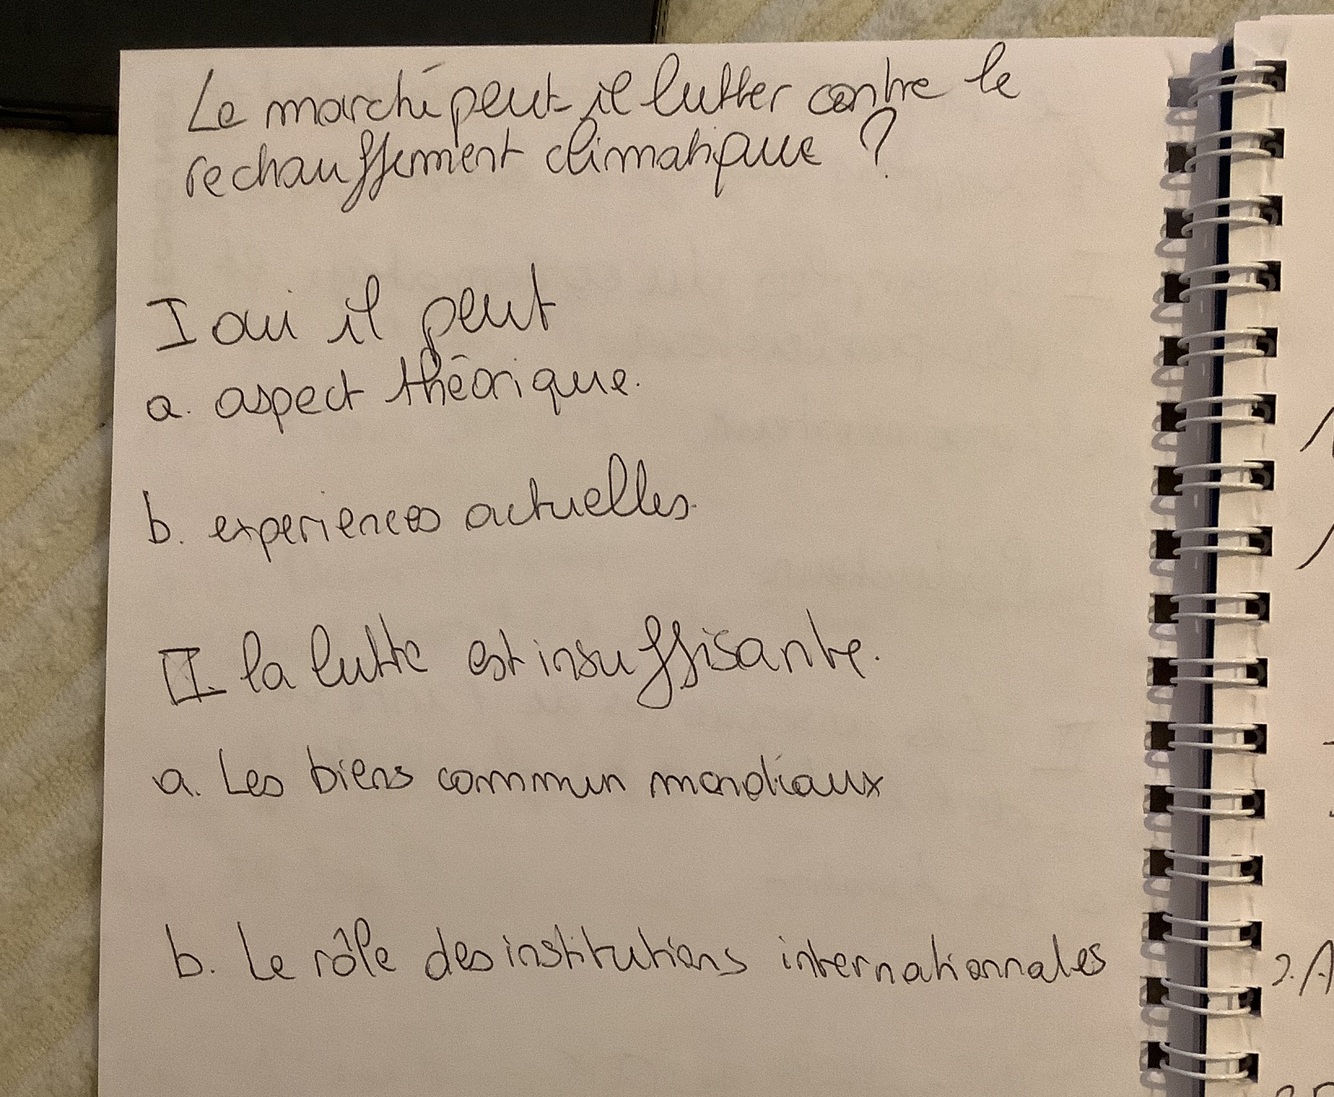 Le marché peut-il lutter contre le
rechauffement climatique ?
I oui il peut
a. aspect théorique.
b. experiences actuelles.
II la lutte est insuffisante.
a. Les biens commun mondiaux
b. Le rôle des institutions internationnales
2. A